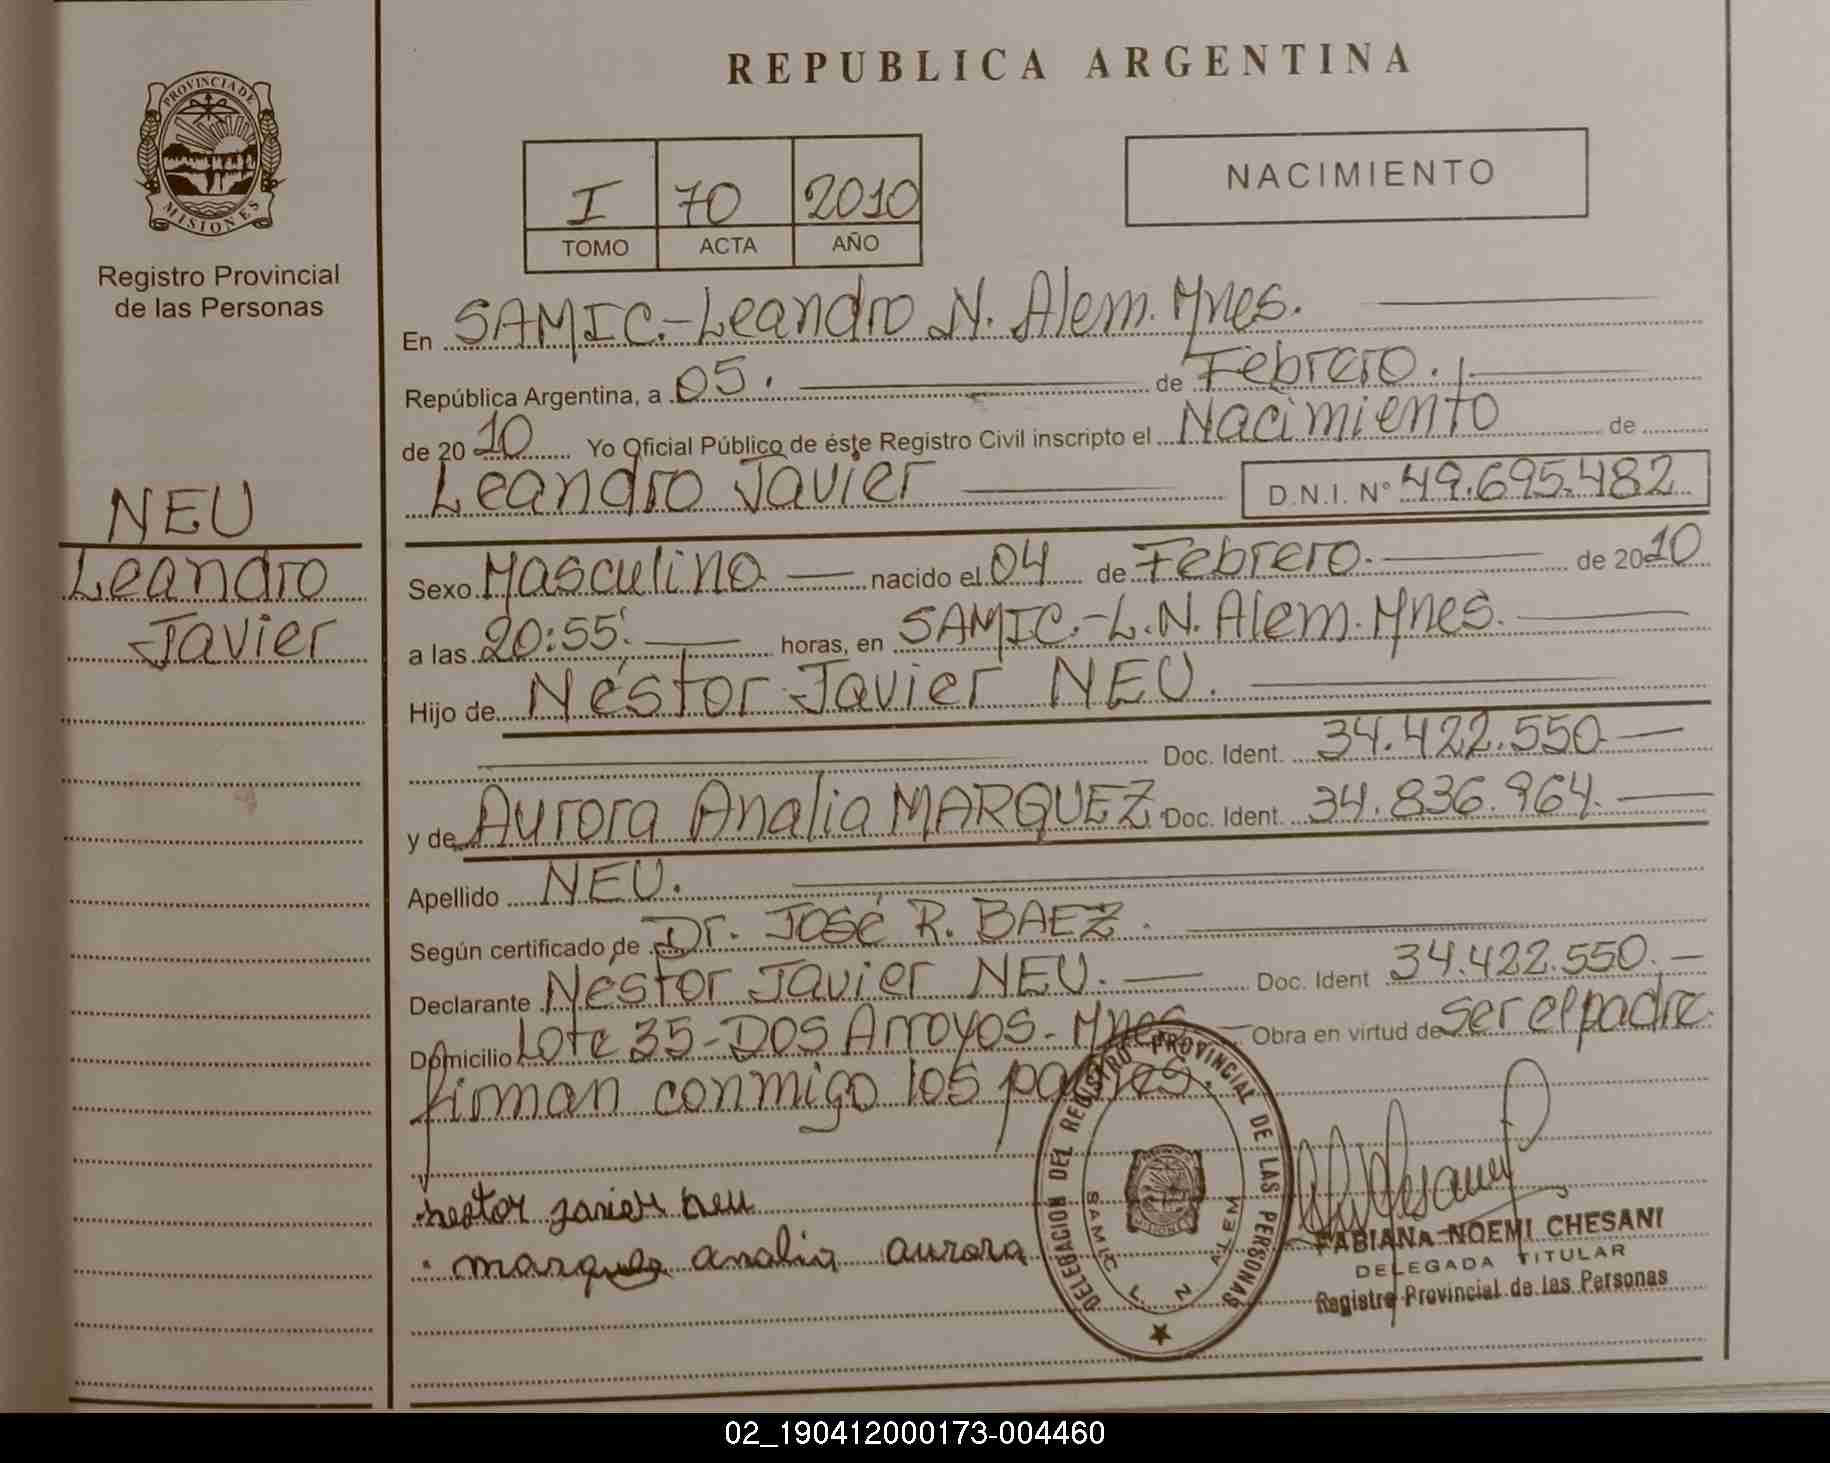 REPUBLICA ARGENTINA
PROVINCIA DE
MISIONES
Registro Provincial
de las Personas
I 70 2010
TOMO ACTA AÑO
NACIMIENTO
En SAMIC.-Leandro N. Alem. Mnes.
República Argentina, a 05. de Febrero.
de 2010 Yo Oficial Público de éste Registro Civil inscripto el Nacimiento de
Leandro Javier D.N.I. N° 49.695.482
NEU
Leandro
Javier
Sexo Masculino nacido el 04 de Febrero. de 2010
a las 20:55. horas, en SAMIC.-L.N. Alem. Mnes.
Hijo de Néstor Javier NEU.
Doc. Ident. 34.422.550
y de Aurora Analia MARQUEZ Doc. Ident. 34.836.964.
Apellido NEU.
Según certificado de Dr. José R. BAEZ.
Declarante Nestor Javier NEU. Doc. Ident 34.422.550.
Domicilio Lote 35-DOS Arroyos-Mnes. Obra en virtud de ser el padre.
firman conmigo los padres.
nestor javier neu
marquez analia aurora
DELEGACION DEL REGISTRO PROVINCIAL DE LAS PERSONAS
SAMIC L. N. ALEM
FABIANA NOEMI CHESANI
DELEGADA TITULAR
Registro Provincial de las Personas
02_190412000173-004460